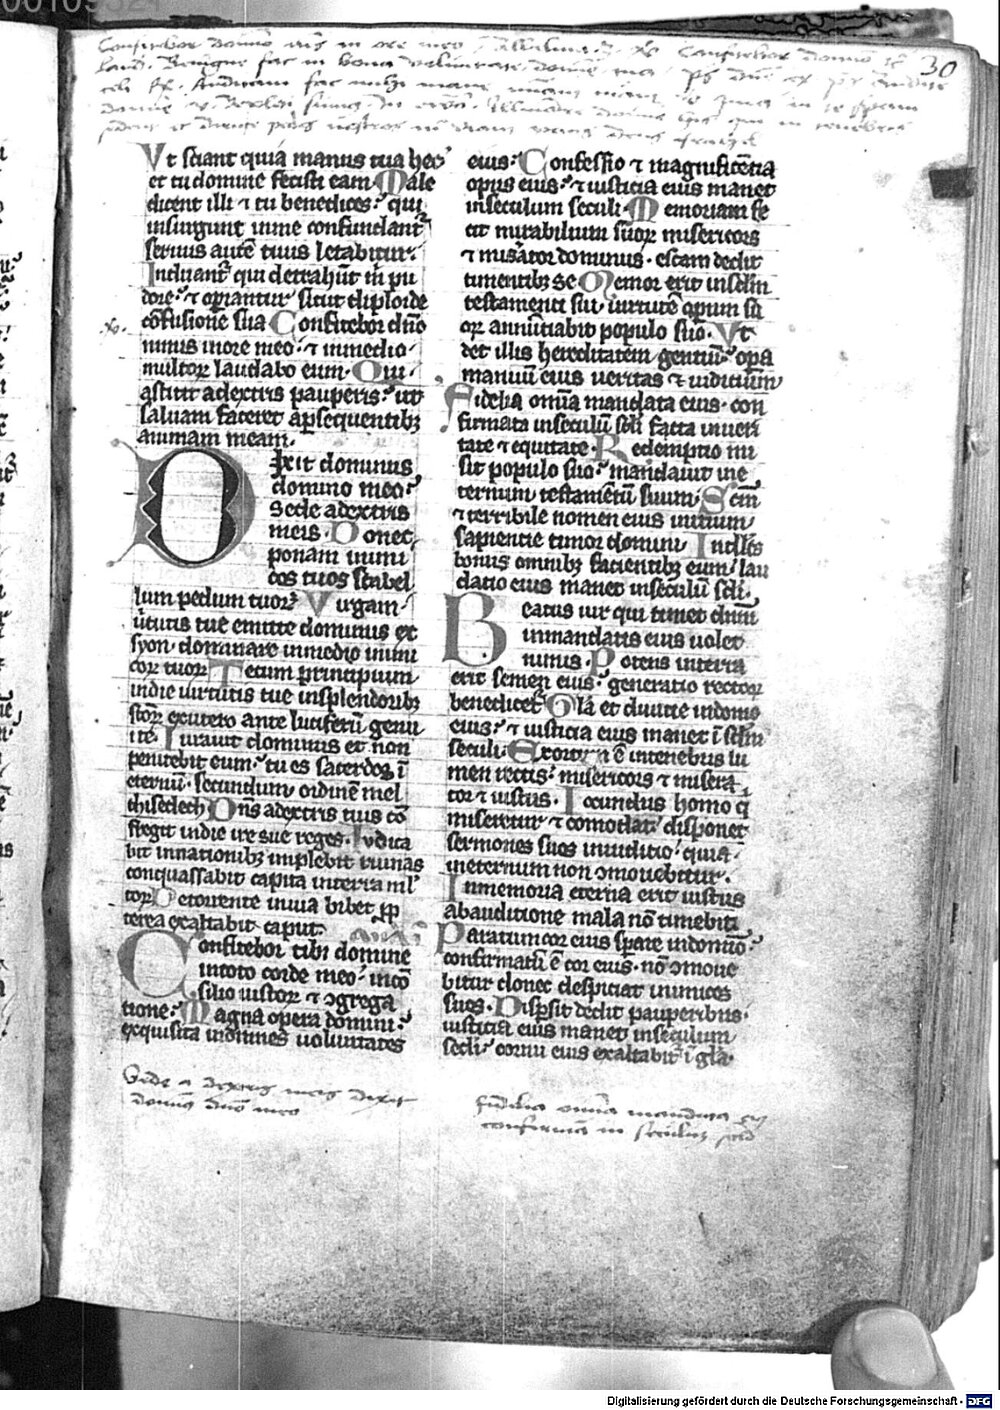 30
Vt sciant quia manus tua hec
et tu domine fecisti eam Male
dicent illi ⁊ tu benedices: qui
insurgunt in me confundant̄
seruus autē tuus letabitur:
Induant̄ qui detrahūt m̄ pu
dore: ⁊ operiantur sicut diploide
cōfusione sua Confitebor dn̄o
nimis in ore meo: ⁊ in medio
multoꝝ laudabo eum. Qui
astitit a dextris pauperis: ut
saluam faceret a ꝑsequentibꝫ
animam meam.
Dixit dominus
domino meo:
Sede a dextris
meis. Donec
ponam inimi
cos tuos scabel
lum pedum tuoꝝ Virgam
uirtutis tue emittet dominus ex
syon dominare in medio inimi
coꝝ tuoꝝ Tecum principium
in die uirtutis tue in splendoribꝫ
sc̄oꝝ ex utero ante luciferū genui
te. Iurauit dominus et non
penitebit eum: tu es sacerdos ī
eternū. secundum ordinē mel
chisedech Dn̄s a dextris tuis cō
fregit in die ire sue reges. Iudica
bit in nationibꝫ implebit ruinas
conquassabit capita in terra ml̄
toꝝ De torrente in uia bibet ꝓp
terea exaltabit caput.
Confitebor tibi domine
in toto corde meo: in cō
silio iustoꝝ ⁊ ꝯgrega
tione: Magna opera domini:
exquisita in omnes uoluntates
eius: Confessio ⁊ magnificētia
opus eius: ⁊ iusticia eius manet
in seculum seculi. Memoriam fe
cit mirabilium suoꝝ misericors
⁊ mis̄ator dominus. escam dedit
timentibꝫ se Memor erit in sc̄lm
testamenti sui uirtutē opum su
oꝝ annūtiabit populo suo. Vt
det illis hereditatem gentiū: oꝑa
manuū eius ueritas ⁊ iudicium
Fidelia om̄ia mandata eius. con
firmata in seculū sc̄li facta in ueri
tate ⁊ equitate Redemptio mi
sit populo suo: mandauit in e
ternum testamētū suum Scm̄
⁊ terribile nomen eius initium
sapientie timor domini Intll̄s
bonus omnibꝫ facientibꝫ eum lau
datio eius manet in seculū sc̄li.
Beatus uir qui timet dn̄m
in mandatis eius uolet
nimis. Potens in terra
erit semen eius: generatio rectoꝝ
benedicet̄ Glā et diuitie in domo
eius: ⁊ iusticia eius manet ī sc̄lm
seculi Exortum ē in tenebris lu
men rectis: misericors ⁊ misera
tor ⁊ iustus. Iocundus homo q̄
miseretur ⁊ comodat: disponet
sermones suos in iudicio: quia
in eternum non ꝯmouebitur.
In memoria eterna erit iustus
ab auditione mala nō timebit
Paratum cor eius sperare in domīo:
confirmatū ē cor eius. nō ꝯmoue
bitur donec despiciat inimicos
suos. Dispersit dedit pauperibus.
iusticia eius manet in seculum
seculi: cornu eius exaltabit̄ ī gl̄a.
Sede a dextris meis dixit
dominus domino meo
Fidelia omnia mandata eius
confirmata in seculum seculi
Digitalisierung gefördert durch die Deutsche Forschungsgemeinschaft - DFG